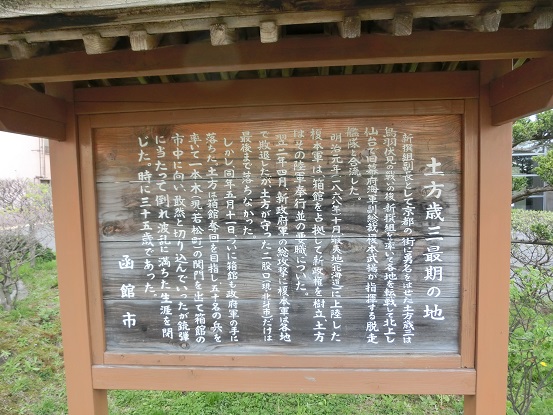 土方歳三最期の地
新撰組副長として京都の街に勇名をはせた土方歳三は
鳥羽伏見の戦いの後、新撰組を率いて各地を転戦して北上し
仙台で旧幕府海軍副総裁榎本武揚が指揮する脱走
艦隊と合流した。
明治元年(一八六八年)十月、蝦夷地(北海道)に上陸した
榎本軍は、箱館を占拠して新政権を樹立、土方
はその陸軍奉行並の要職についた。
翌二年四月、新政府軍の総攻撃に榎本軍は各地
で敗退したが、土方が守った二股口(現北斗市)だけは
最後まで落ちなかった。
しかし、同年五月十一日、ついに箱館も政府軍の手に
落ちた。土方は箱館奪回を目指し、五十名の兵を
率いて一本木(現若松町)の関門を出て箱館の
市中に向い、敢然と切り込んでいったが、銃弾
に当たって倒れ、波乱に満ちた生涯を閉
じた。時に三十五歳であった。
函館市